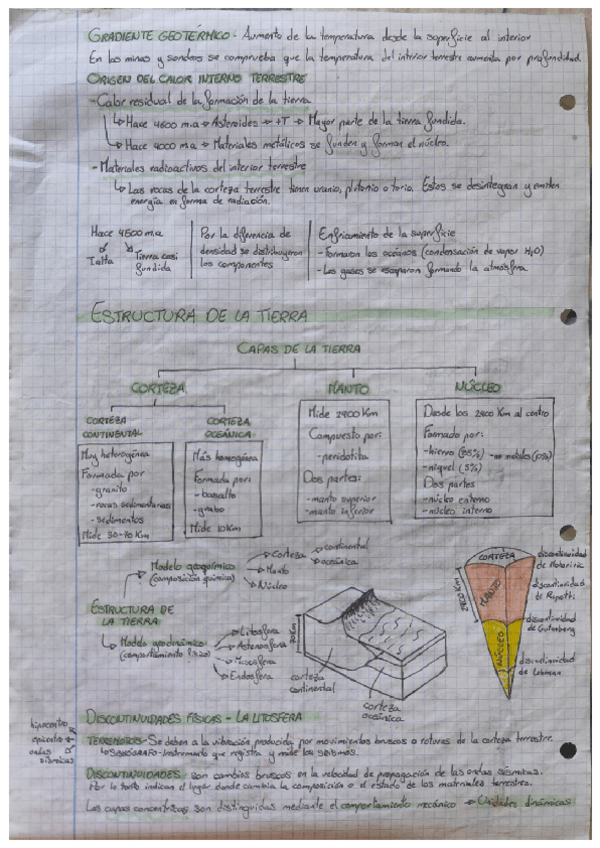 GRADIENTE GEOTÉRMICO- Aumento de la temperatura desde la superficie al interior
En las minas y sondeos se comprueba que la temperatura del interior terrestre aumenta por profundidad.
ORIGEN DEL CALOR INTERNO TERRESTRE
-Calor residual de la formación de la tierra
↳Hace 4600 m.a → Asteroides → +T → Mayor parte de la tierra fundida.
↳Hace 4000 m.a → Materiales metálicos se funden y forman el núcleo.
-Materiales radioactivos del interior terrestre
↳Las rocas de la corteza terrestre tienen uranio, plutonio o torio. Estos se desintegran y emiten
energía en forma de radiación.
Hace 4500 m.a
Tierra casi
fundida
Por la diferencia de
densidad se distribuyeron
los componentes
Enfriamiento de la superficie
-Formaron los océanos (condensación de vapor H₂O)
-Los gases se escaparon formando la atmósfera
ESTRUCTURA DE LA TIERRA
CAPAS DE LA TIERRA
CORTEZA
MANTO
NÚCLEO
CORTEZA
CONTINENTAL
Muy heterogénea
Formada por
-granito
-rocas sedimentarias
-sedimentos
Mide 30-70 Km
CORTEZA
OCEÁNICA:
Más homogénea
Formada por:
-basalto
-gabro
Mide 10Km
Mide 2900 Km
Compuesto por:
-peridotita
Dos partes:
-manto superior
-manto inferior
Desde los 2900 Km al centro
Formado por:
-hierro
-níquel (5%)
-no metales (10%)
Dos partes
-núcleo externo
-núcleo interno
ESTRUCTURA DE
LA TIERRA
Modelo geoquímico
(composición química)
Corteza
continental
oceánica
Manto
Núcleo
Modelo geodinámico
(comportamiento físico)
Litosfera
Astenosfera
Mesosfera
Endosfera
70Km
corteza
continental
corteza
oceánica
CORTEZA
MANTO
NÚCLEO
2900 Km
discontinuidad
de Mohorovic
discontinuidad
de Repetti
discontinuidad
de Gutenberg
discontinuidad
de Lehman
DISCONTINUIDADES FÍSICAS - LA LITOSFERA
hipocentro
epicentro
ondas
sísmicas
TERREMOTOS-Se deben a la vibración producida por movimientos bruscos o roturas de la corteza terrestre.
↳SISMÓGRAFO-Instrumento que registra y mide los seísmos.
DISCONTINUIDADES: son cambios bruscos en la velocidad de propagación de las ondas sísmicas.
Por lo tanto indican el lugar donde cambia la composición o el estado de los materiales terrestres.
Las capas concéntricas son distinguidas mediante el comportamiento mecánico → Unidades dinámicas